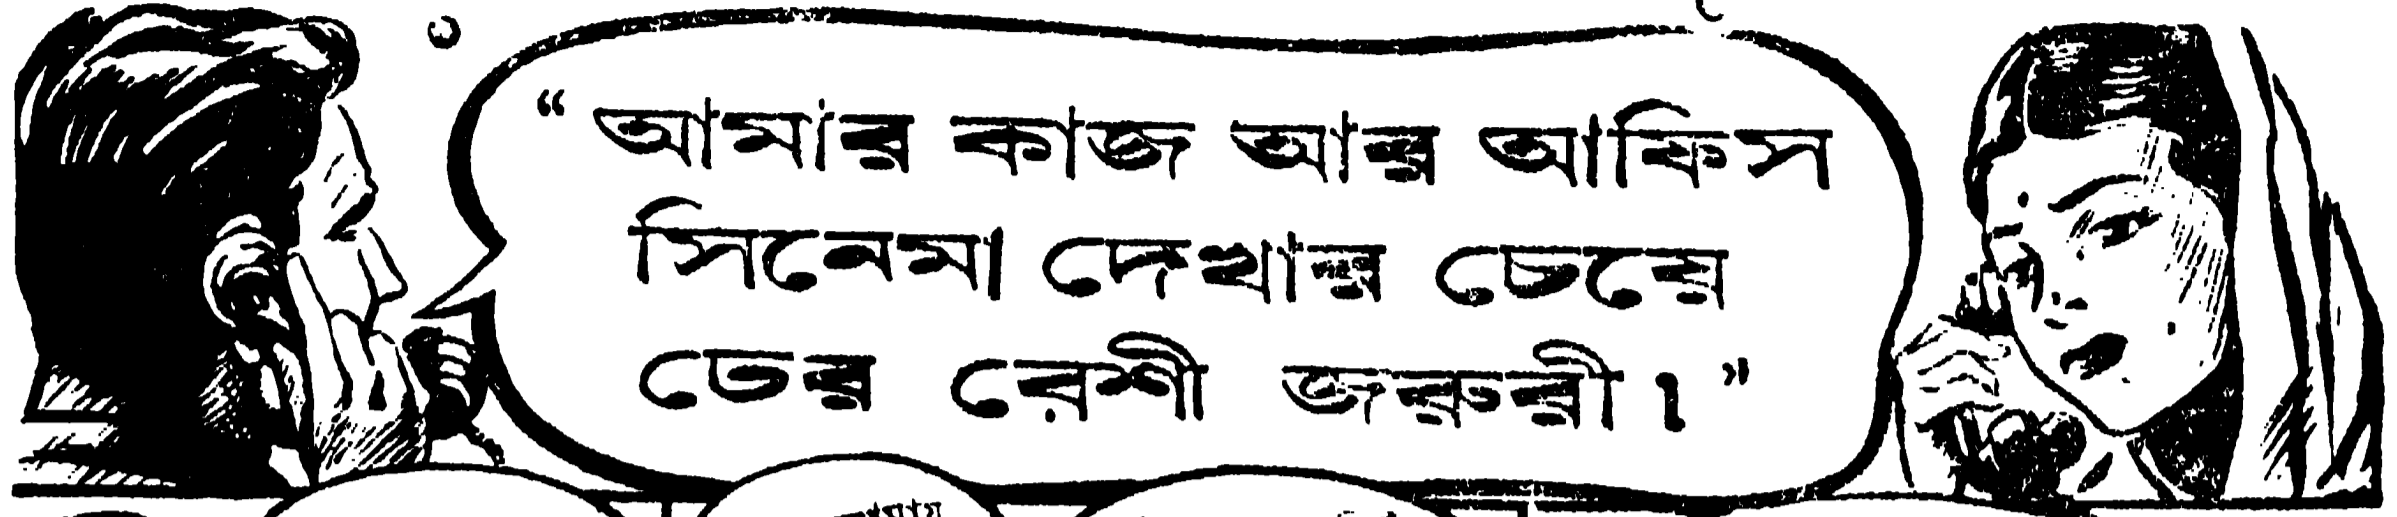 “আমার কাজ আর আফিস
সিনেমা দেখার চেয়ে
ঢের বেশী জরুরী।”